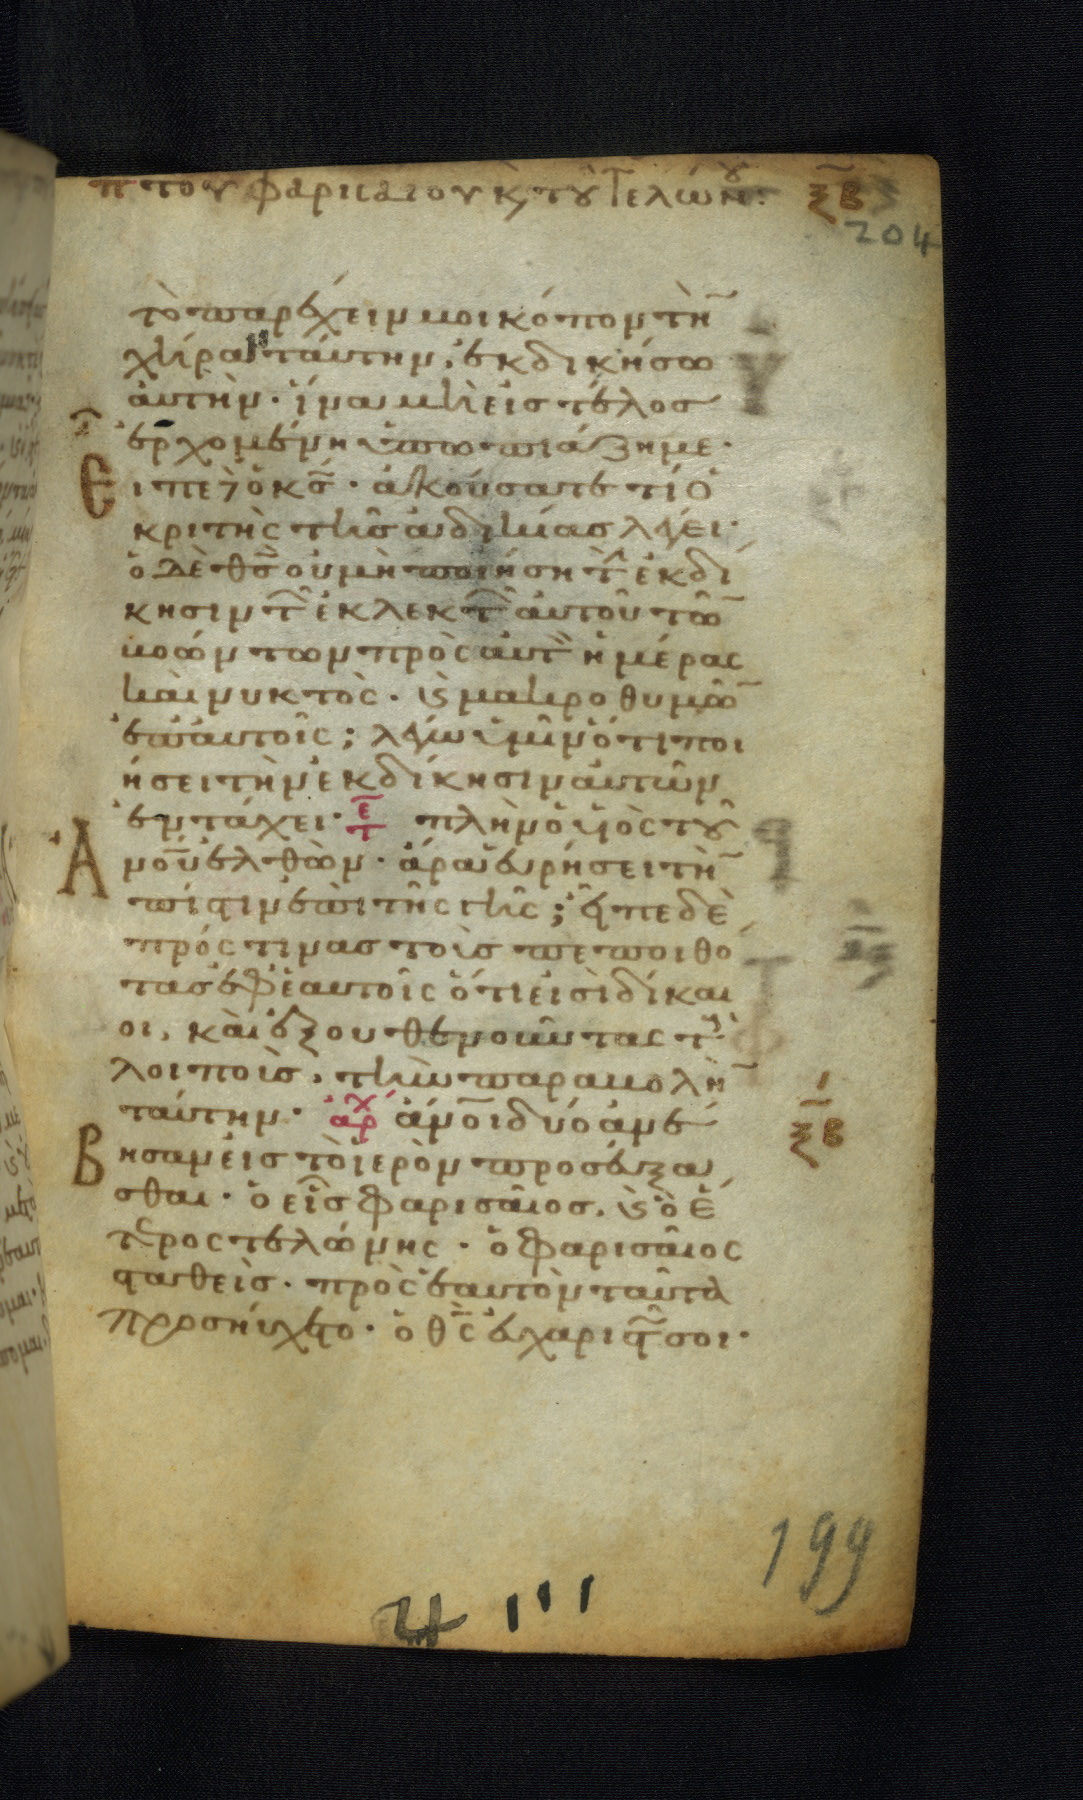 π του φαρισαιου κ, τȣ τελώνȣ: ξβ
204
τὸ παρέχειν μοι κόπον τὴ̅
χήραν ταύτην, ἐκδικήσω
ἀυτὴν · ἵνα μὴ εἰς τέλος
ἐρχομένη ὑπωπιάζη με ·
Ειπε δὲ ὁ κς̅ · ἀκούσατε τί ὁ
κριτὴς τῆς ἀδικίας λέγει ·
ὁ δὲ θς̅ ου μὴ ποιήση τ̀ ἐκδί
κησιν τ̑ ἐκλεκτ̑ ἀυτοῦ τῶ̅
βοώντων πρὸς ἀυτ̀ ἡμέρας
καὶ νυκτὸς · ϗ μακροθυμῶ̅
ἐπ' ἀυτοῖς; λέγω ὑμῖν ὅτι ποι
ήσει τὴν ἐκδίκησιν ἀυτῶν
ἐν τάχει · ε̅τ πλὴν ὁ υἱὸς τȣ͂
Ἀνου̅ ἐλθὼν · ἆρα ἑυρήσει τὴ̅
πίστιν ἐπὶ τῆς γῆς; εἶπε δὲ
πρός τινας τοὺς πεποιθό
τας ἐφ' ἑαυτοῖς ὅτι εἰσὶ δίκαι
οι, καὶ ἐξουθενοῦντας τ̀
λοιποὺς, τὴν παραβολὴ̅
ταύτην · ἀρχ ἄνο̅ι δύο ἀνέ
Βησαν εἰς τὸ ἱερὸν προσέυξα
σθαι · ὁ εἷς φαρισαῖος, ϗ ὁ ἕ
τερος τελώνης · ὁ φαρισαῖος
σταθεὶς · πρὸς ἑαυτὸν ταῦτα
προσήυχετο · ὁ θς̅ ἐυχαριστῶ σοι ·
ξβ
199